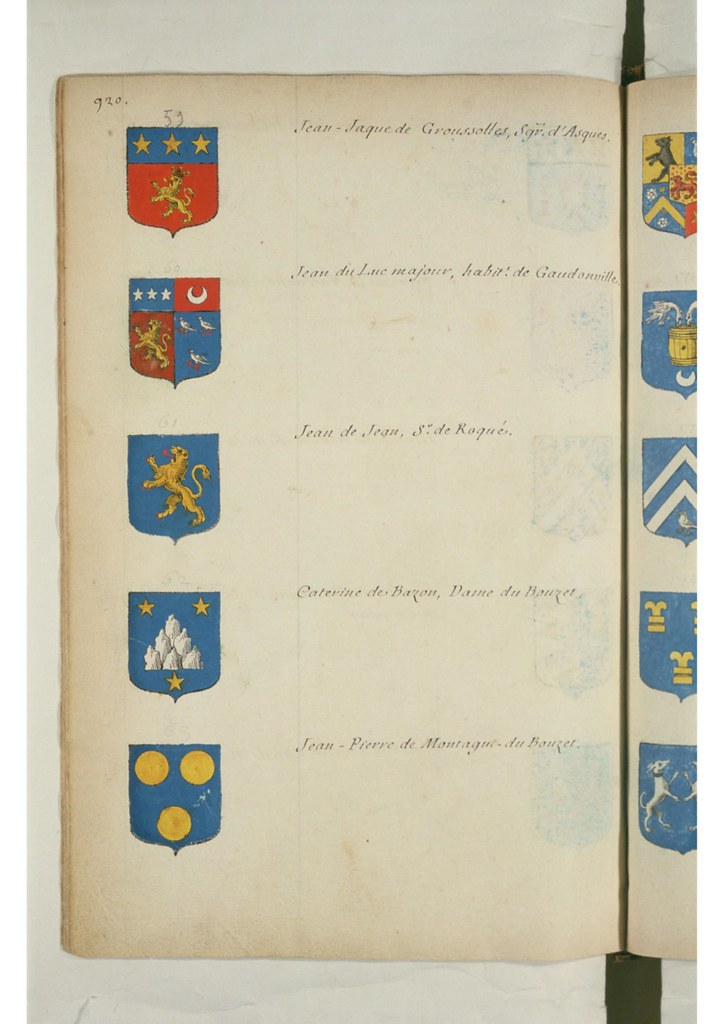 920.
59
Jean-Jaque de Groussolles, Sgr. d'Asques.
60
Jean du Luc majour, habit.t de Gaudonville.
61
Jean de Jean, S.r de Roqués.
62
Caterine de Bazon, Dame du Bouzet.
Jean-Pierre de Montagut-du Bouzet.